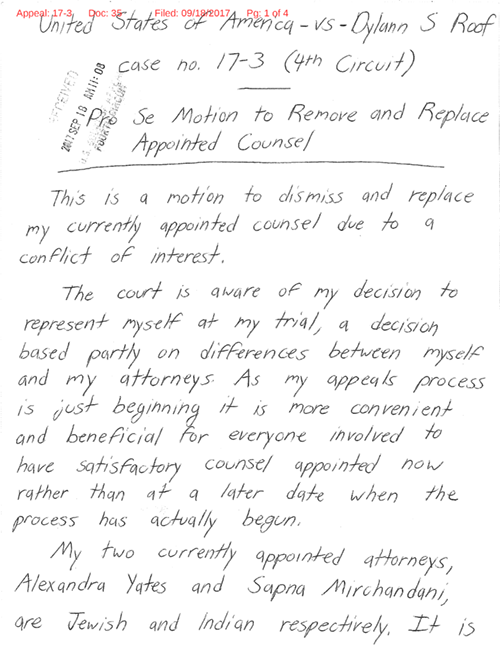 Appeal: 17-3 Doc: 35 Filed: 09/18/2017 Pg: 1 of 4
United States of America - vs - Dylann S Roof
case no. 17-3 (4th Circuit)
RECEIVED
2017 SEP 18 AM 11: 08
Pro Se Motion to Remove and Replace
Appointed Counsel
This is a motion to dismiss and replace
my currently appointed counsel due to a
conflict of interest.
The court is aware of my decision to
represent myself at my trial, a decision
based partly on differences between myself
and my attorneys. As my appeals process
is just beginning it is more convenient
and beneficial for everyone involved to
have satisfactory counsel appointed now
rather than at a later date when the
process has actually begun.
My two currently appointed attorneys,
Alexandra Yates and Sapna Mirchandani,
are Jewish and Indian respectively. It is